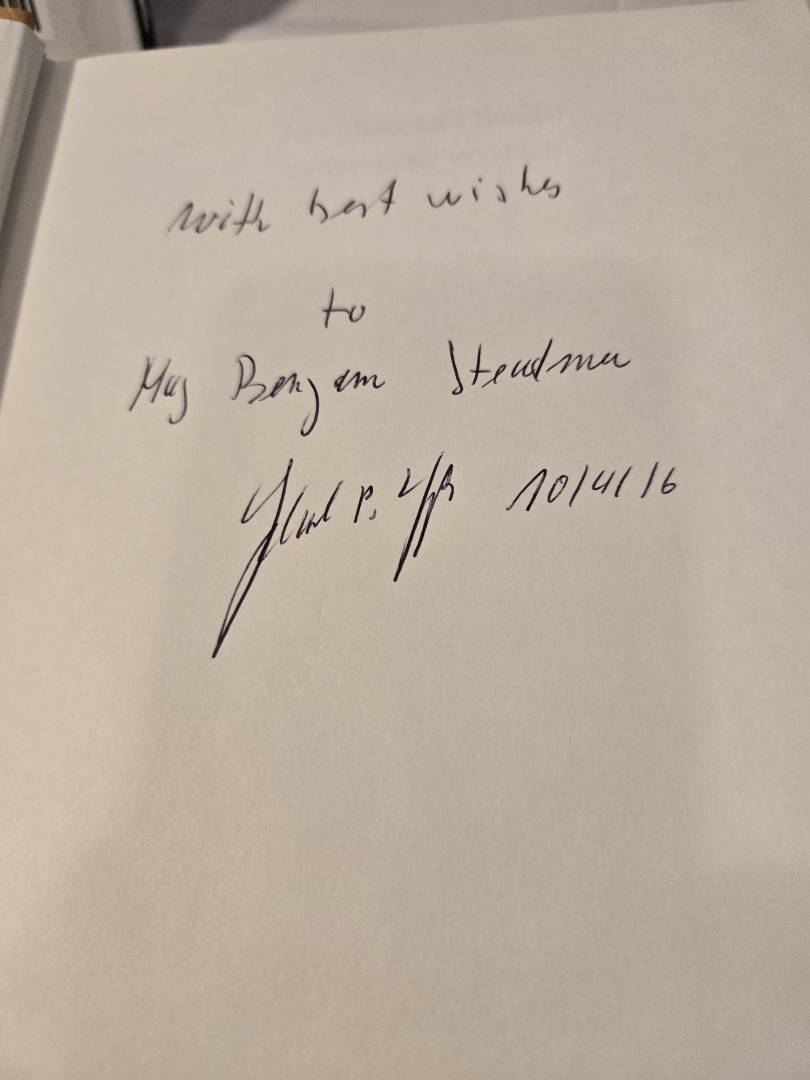 with best wishes
to
Maj Benjam Steadman
P. 10/4/16